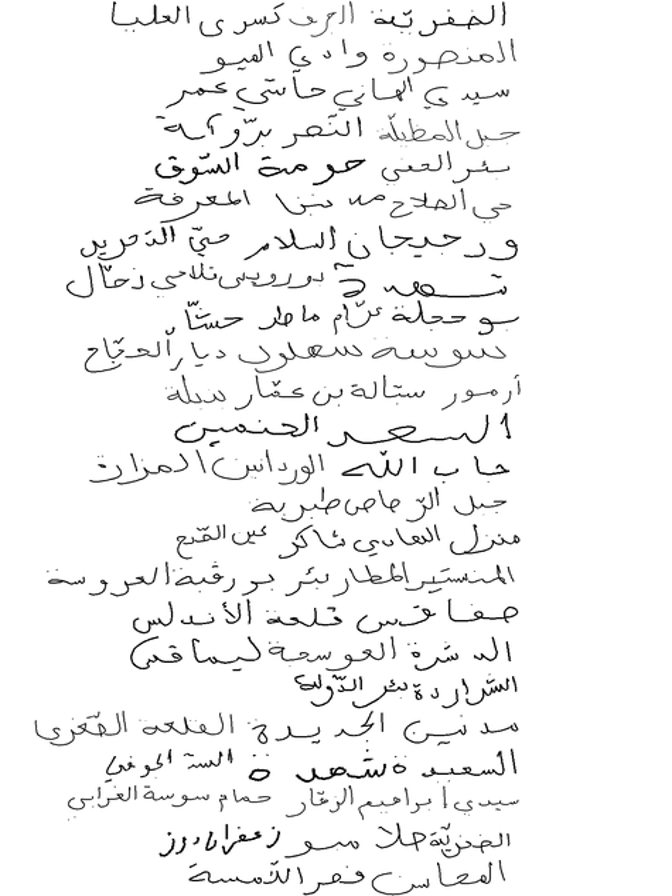 الخضريّة الجرف كسرى العليا
المنصورة وادي الميو
سيدي الهاني حاشي عمر
جبل المظيلّة النّصر برّوكية
بئر العتي حومة السّوق
حي الفلاح مدنين المعرفة
ورجيجان السلام حيّ التحرير
شهدة بورويس تلاجي زحّال
بوحجلة عرّام ماطر حشّا
سوسة سهلول ديار الحجّاج
أرمور ستالة بن عمّار
السعد الجنمين
جاب اللّه الوردانين المزات
جبل الرّصاص طبربة
منزل الهادي شاكر عين القمح
المنستير المطار بئر بورقبة العروسة
صفاقس قلعة الأندلس
الدشرة العوسجة ليماقس
الشراردة بئر
مدنين الجديدة القلعة الصّغرى
السعيدة شهدة السدّ الجوفي
سيدي ابراهيم الزهّار حمام سوسة الغرابي
الخضريّة حلا مبو زعفرانا دوز
المحاسن قصر اللّمسة